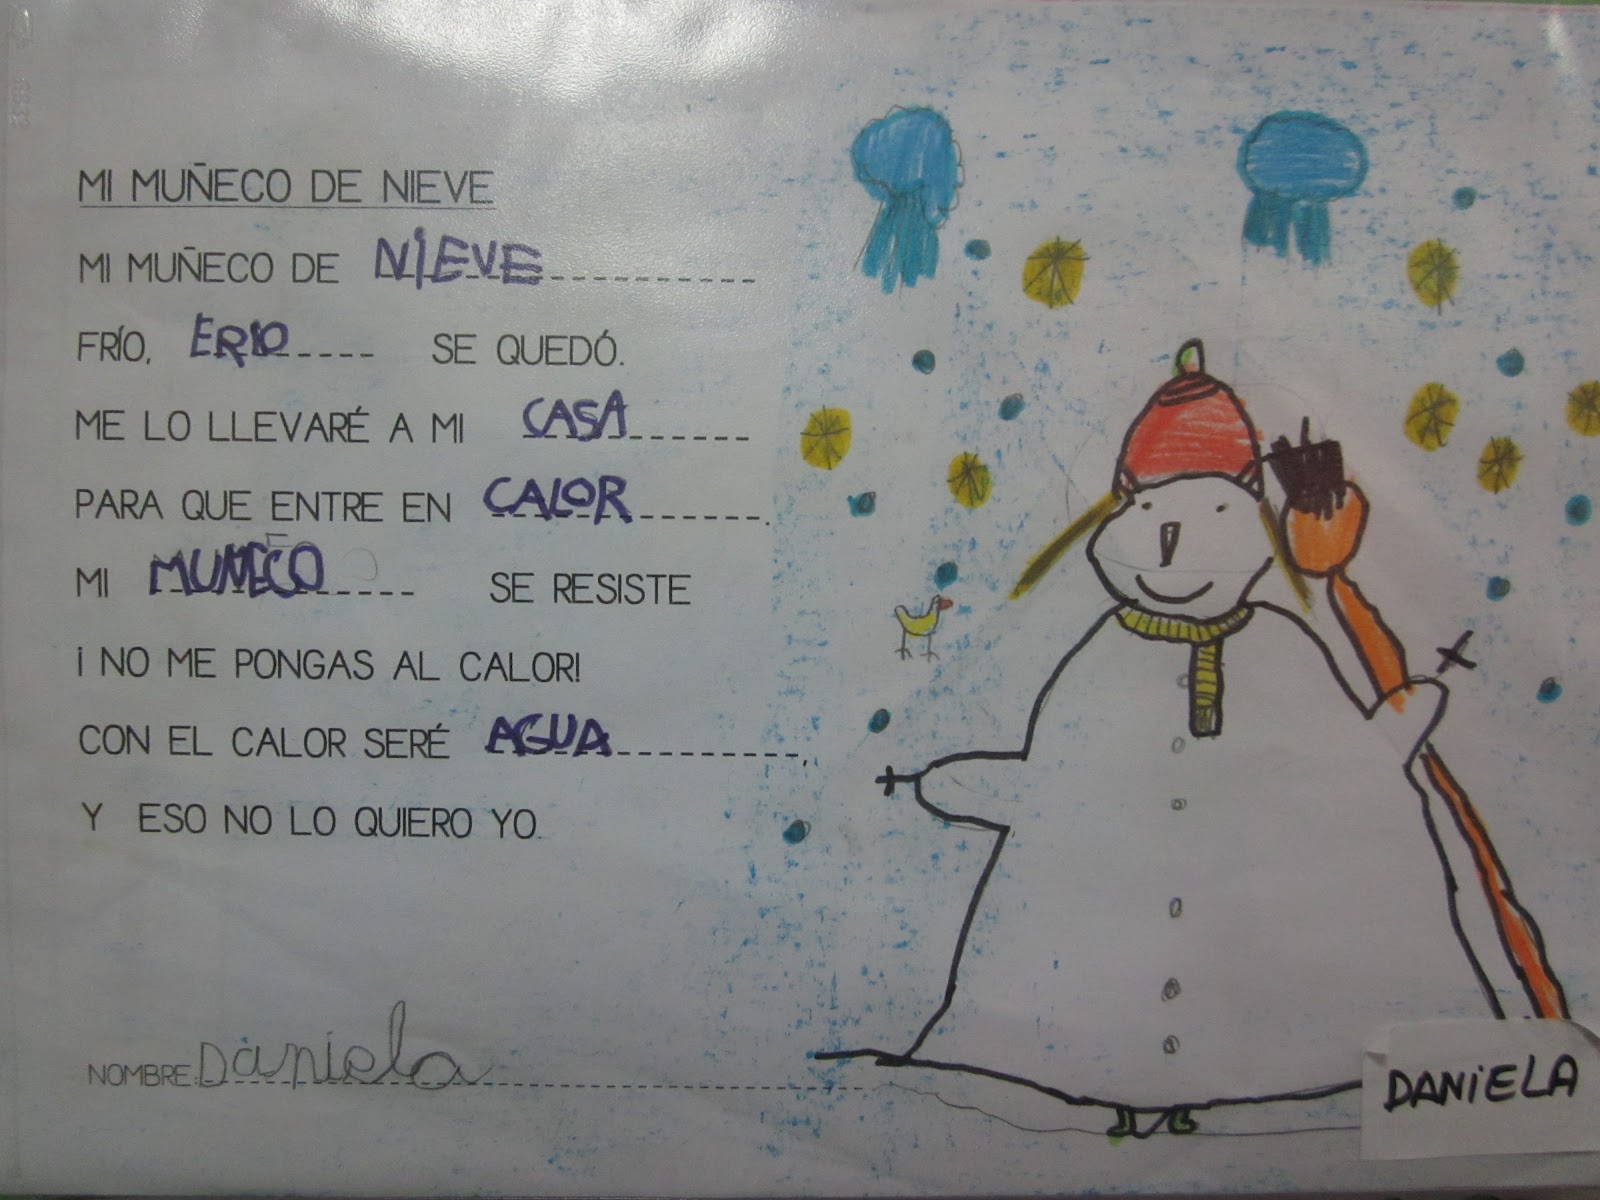 MI MUÑECO DE NIEVE
MI MUÑECO DE NIEVE
FRÍO, ERIO SE QUEDÓ.
ME LO LLEVARÉ A MI CASA
PARA QUE ENTRE EN CALOR.
MI MUNECO SE RESISTE
¡ NO ME PONGAS AL CALOR!
CON EL CALOR SERÉ AGUA,
Y ESO NO LO QUIERO YO.
NOMBRE: Daniela
DANIELA